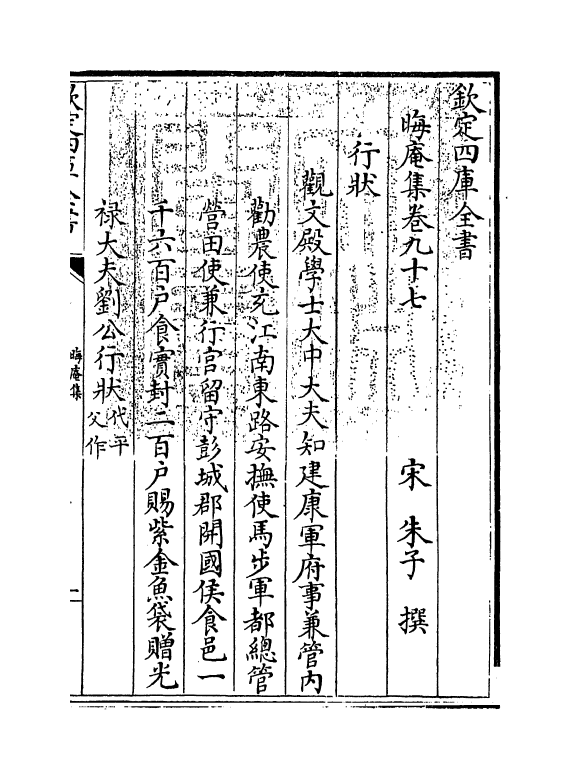 欽定四庫全書
晦庵集卷九十七
宋 朱子 撰
行狀
觀文殿學士大中大夫知建康軍府事兼管內
勸農使充江南東路安撫使馬步軍都總管
營田使兼行宮留守彭城郡開國侯食邑一
千六百户食實封二百户賜紫金魚袋贈光
禄大夫劉公行狀代平父作
欽定四庫全書
晦庵集
一